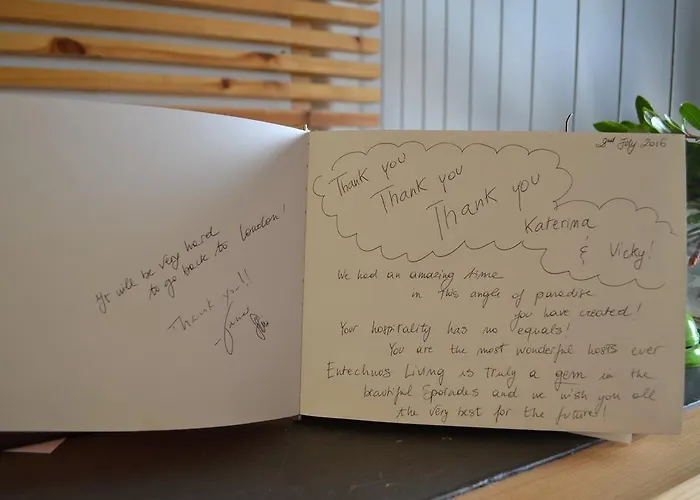 It will be very hard
to go back to London!
Thank you!!
2nd July 2016
Thank you
Thank you
Thank you
Katerina
&
Vicky!
We had an amazing time
in this angle of paradise
you have created!
Your hospitality has no equals!
You are the most wonderful hosts ever
Entechnos Living is truly a gem in the
beautiful Sporades and we wish you all
the very best for the future!